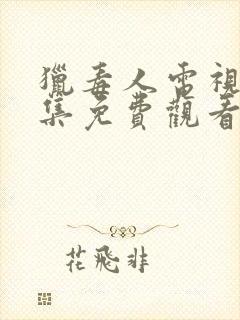 獵毒人電視
集免費觀看
花飛非